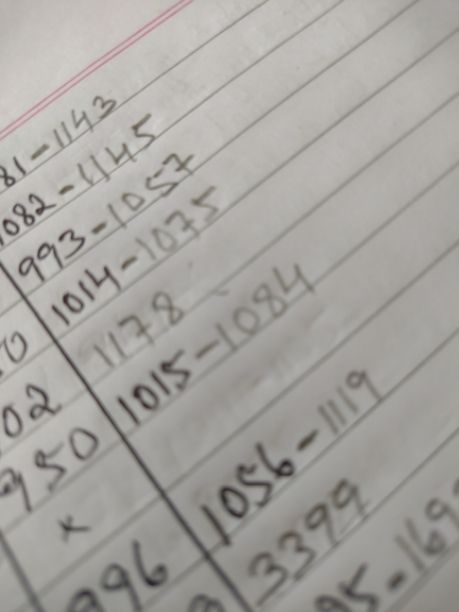 81-1143
1082-1145
993-1057
1014-1075
02 1178
950 1015-1084
x
996 1056-1119
3399
95-169